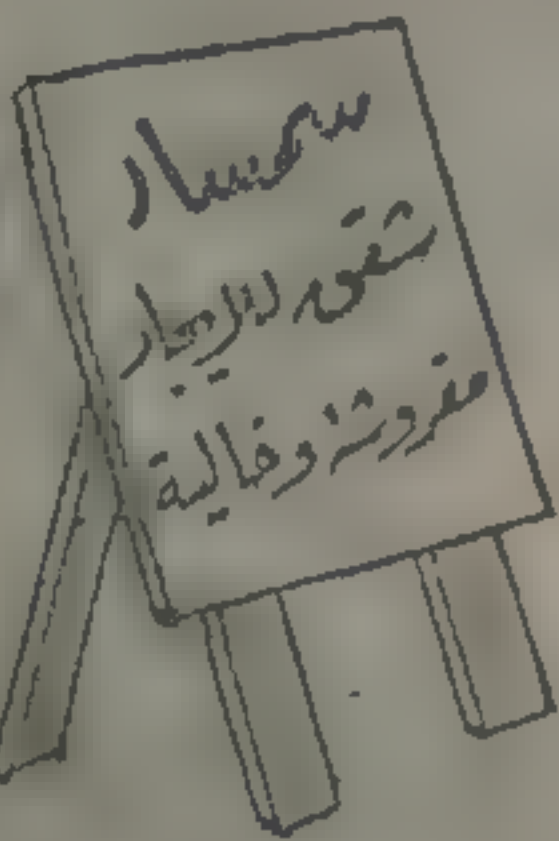 سمسار
شقق للايجار
مفروشة وخالية